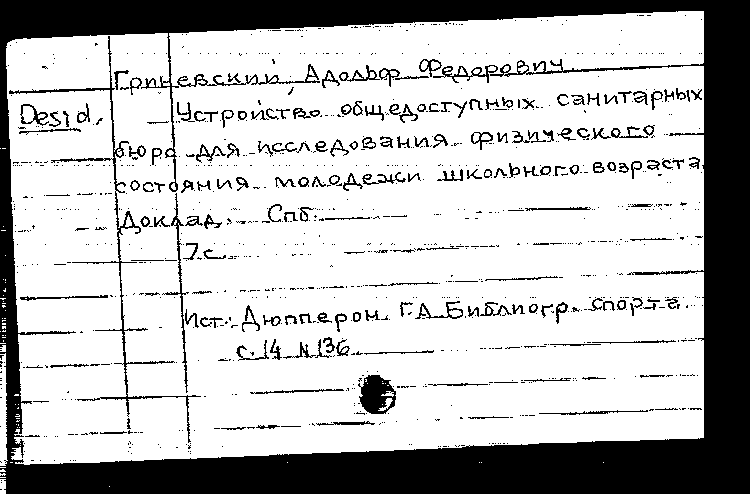 Гриневский, Адольф Федорович
Desid. Устройство общедоступных санитарных
бюро для исследования физического
состояния молодежи школьного возраста.
Доклад. Спб.
7 с.
Ист.: Дюппером Г.А. Библиогр. спорта.
с. 14 N 136